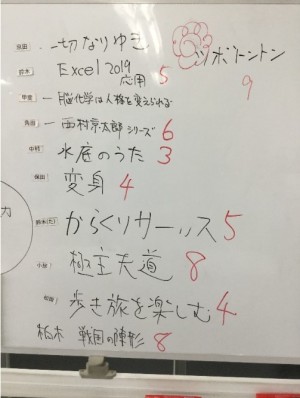 一切なりゆき
ツボリーントン
9
鈴木
Excel 2019
応用 5
脳化学は人格を変えられる
角田
西村京太郎シリーズ 6
中村
水底のうた 3
保田
変身 4
鈴木(た)
からくりサーカス 5
極主夫道 8
歩き旅を楽しむ 4
柏木 戦国の陣形 8
カ